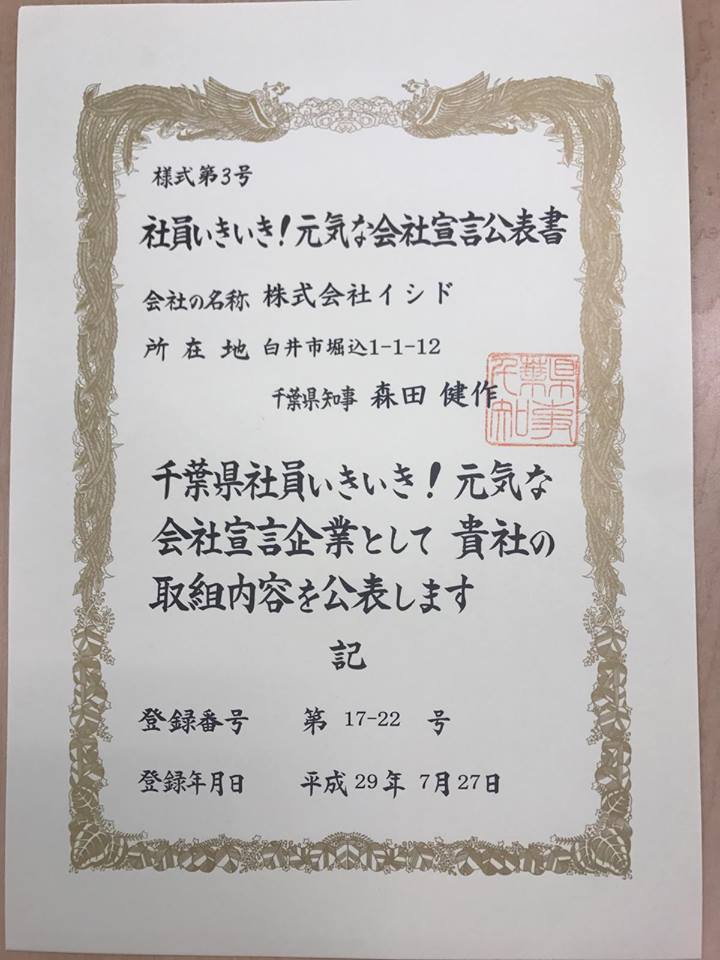 様式第3号
社員いきいき!元気な会社宣言公表書
会社の名称 株式会社イシド
所在地 白井市堀込1-1-12
千葉県知事 森田 健作
千葉県知事
千葉県社員いきいき!元気な
会社宣言企業として 貴社の
取組内容を公表します
記
登録番号 第 17-22 号
登録年月日 平成29年 7月27日